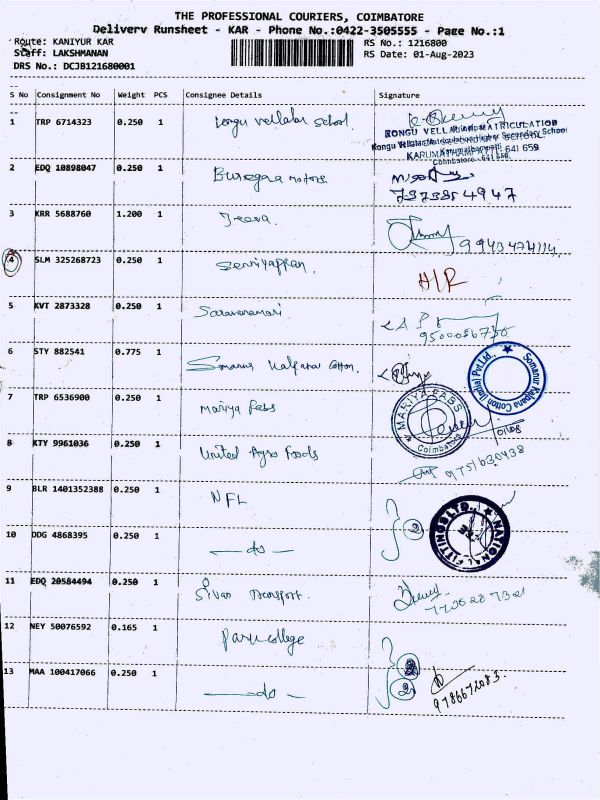 THE PROFESSIONAL COURIERS, COIMBATORE
Delivery Runsheet - KAR - Phone No.:0422-3505555 - Page No.:1
Route: KANIYUR KAR
RS No.: 1216800
Staff: LAKSHMANAN
RS Date: 01-Aug-2023
DRS No.: DCJB121680001
S No Consignment No Weight PCS Consignee Details Signature
1 TRP 6714323 0.250 1 Kongu vellalar school
KONGU VELLALAR MATRICULATION
KARUMATHAMPATTI - 641 659
Coimbatore - 641 659
2 EDQ 10898047 0.250 1 motors
7373854947
3 KRR 5688760 1.200 1 Jeeva
9943474114
4 SLM 325268723 0.250 1
H/R
5 KVT 2873328 0.250 1
6 STY 882541 0.775 1 Kalpana Cotton.
Somanur Kalpana Cotton (India) Pvt.Ltd.,
7 TRP 6536900 0.250 1 Mariya Fabs
MARIYA FABS
Coimbatore
01/08
8 KTY 9961036 0.250 1 United Agro Foods
9751630438
9 BLR 1401352388 0.250 1 NFL
2
NATIONAL FITTINGS LTD.,
10 DDG 4868395 0.250 1 — do —
11 EDQ 20584494 0.250 1 Sivan Transport.
12 NEY 50076592 0.165 1 Park college
13 MAA 100417066 0.250 1 — do —
2
9786672083.